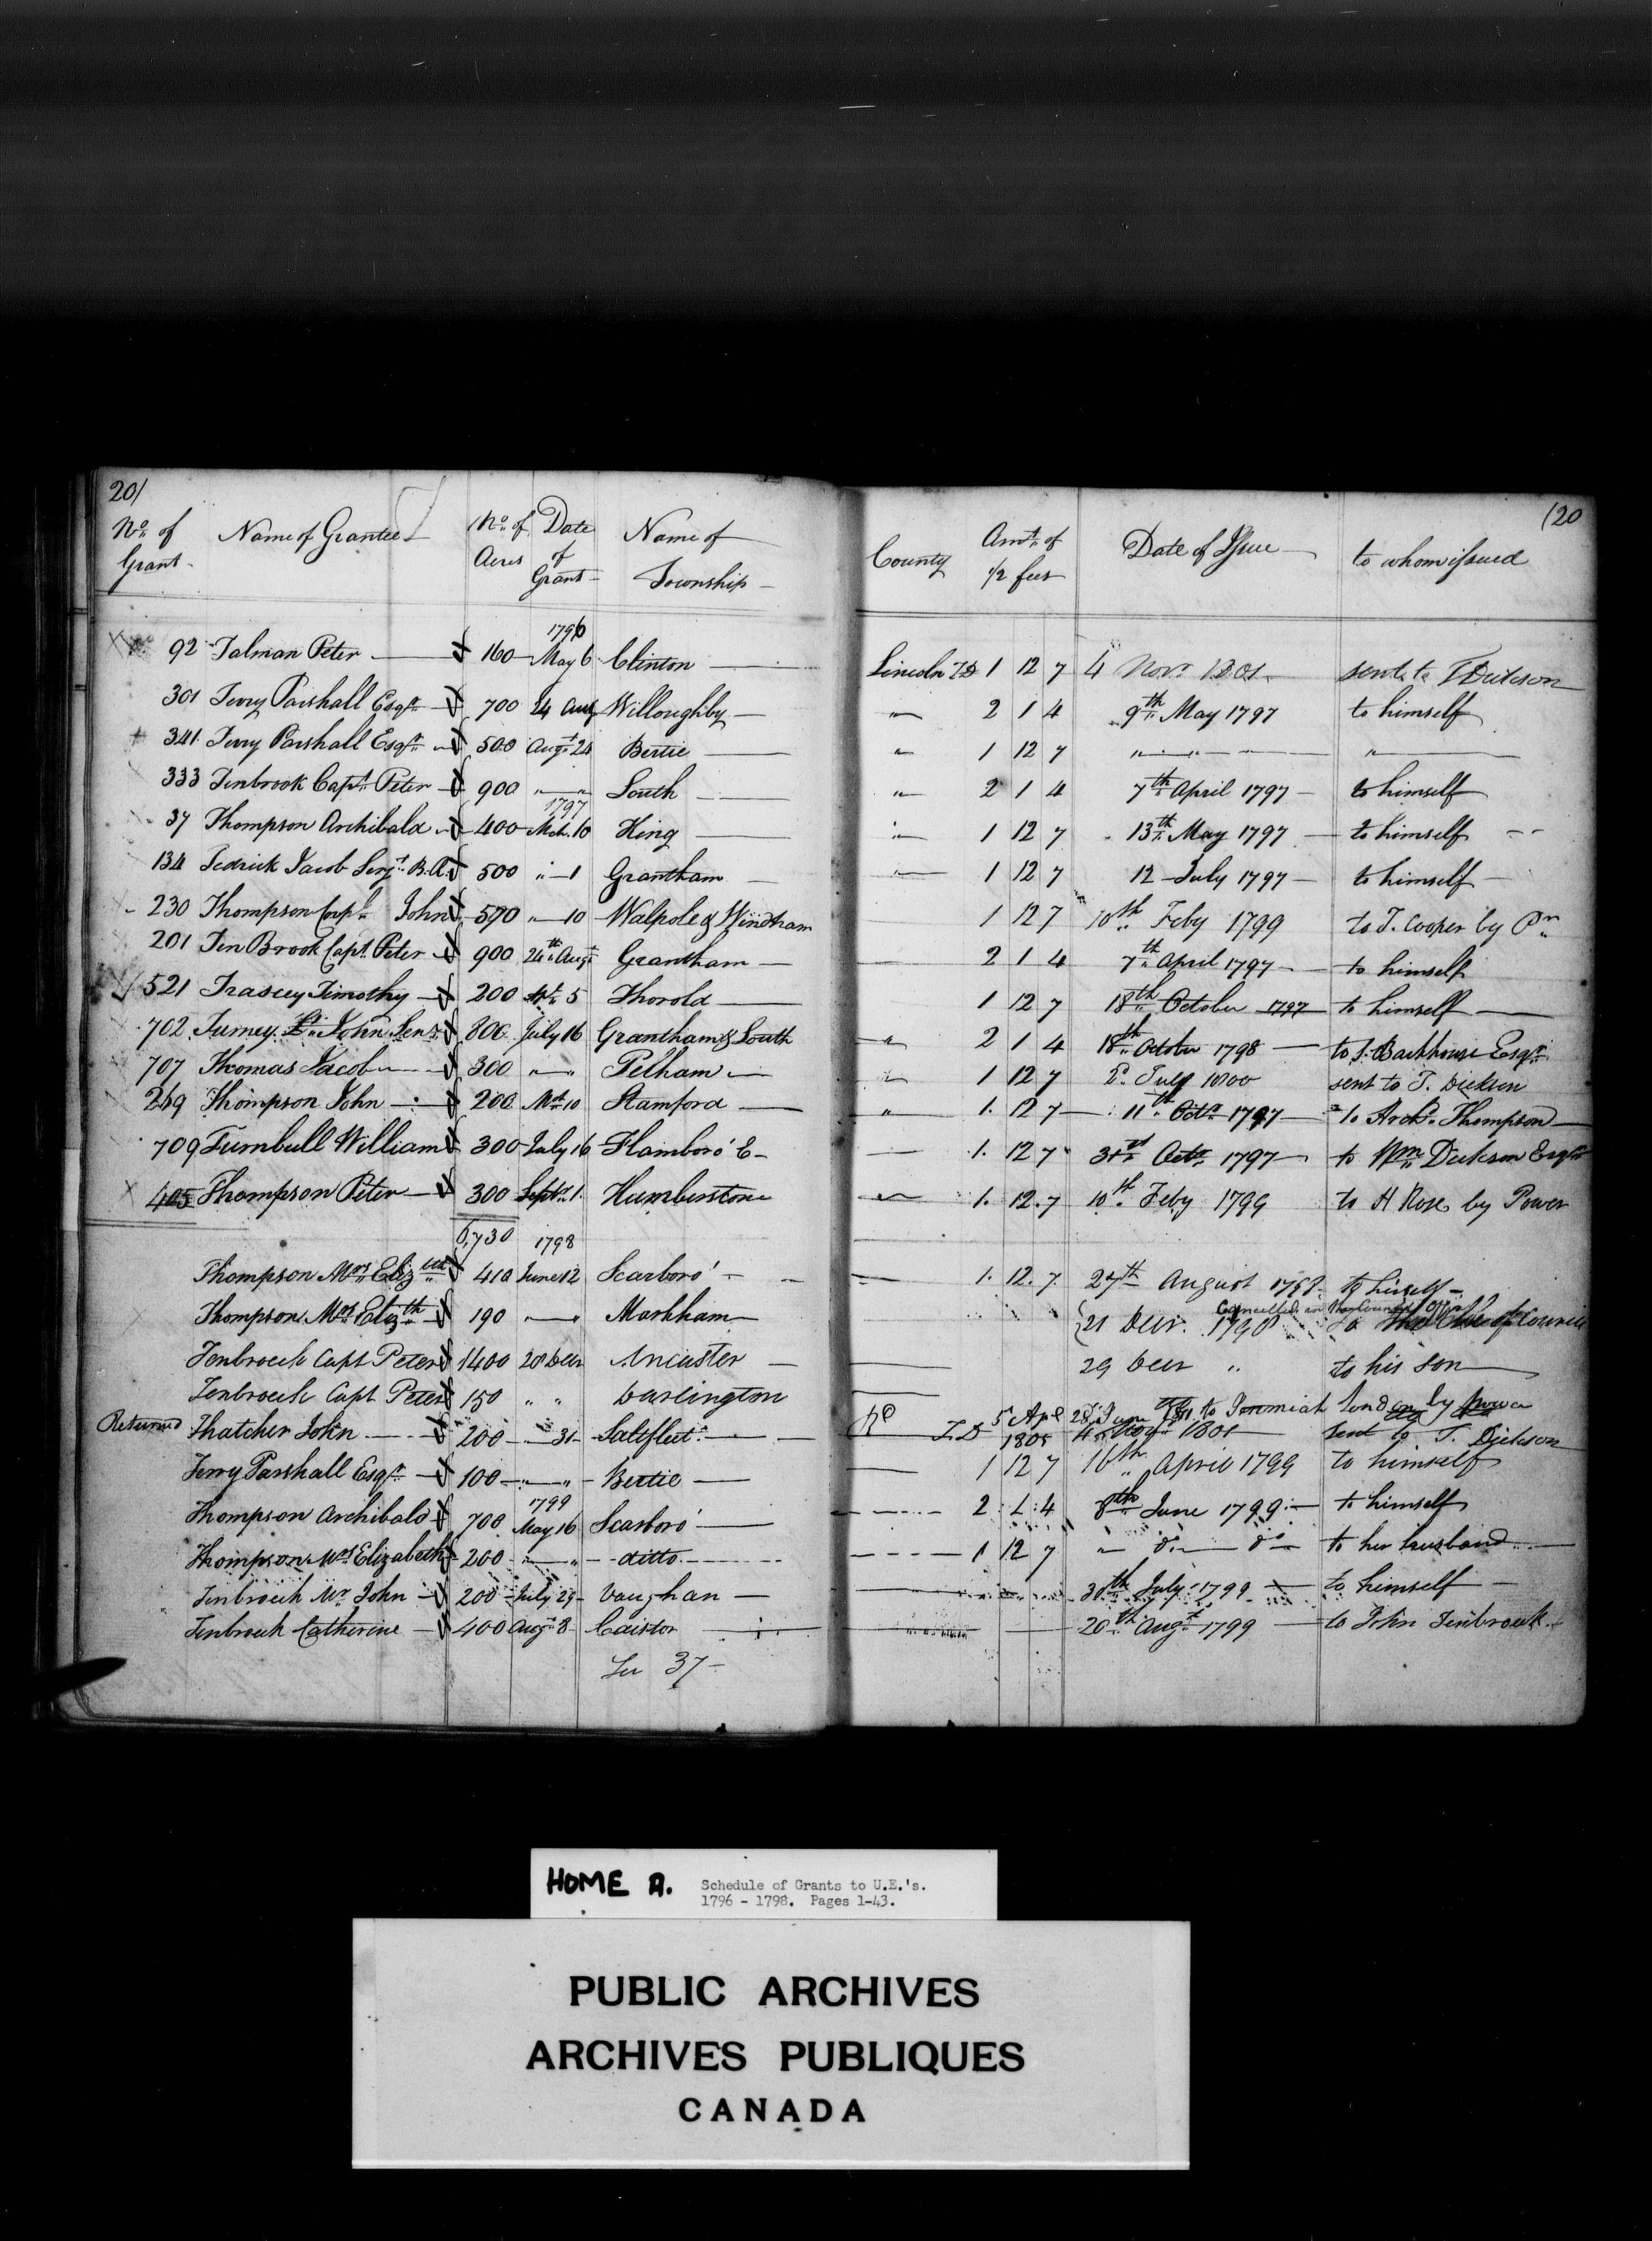 20/
No. of Grant Name of Grantee No. of Acres Date of Grant Name of Township County Amt. of 1/2 fees Date of Issue to whom issued
120
1796
92 Talman Peter 160 May 6 Clinton Lincoln 1 12 7 4 Novr 1801 sent to T Dickson
301 Terry Parshall Esqr 700 24 Aug Willoughby " 2 1 4 9th May 1797 to himself
341 Terry Parshall Esqr 500 Augt 24 Bertie " 1 12 7 " "
333 Tenbrook Capt Peter 900 " " Louth " 2 1 4 7th April 1797 to himself
1797
37 Thompson Archibald 400 Mch. 10 King " 1 12 7 13th May 1797 to himself
134 Tedrick Jacob Serjt B.R. 500 " 1 Grantham " 1 12 7 12 July 1797 to himself
230 Thompson Corpl John 570 " 10 Walpole & Windham 1 12 7 10th Feby 1799 to T. Cooper by Pr
201 Ten Brook Capt Peter 900 24th Augt Grantham 2 1 4 7th April 1797 to himself
521 Trascey Timothy 200 5 Thorold 1 12 7 18th October 1797 to himself
702 Turney Lt John Senr 800 July 16 Grantham & Louth " 2 1 4 18th October 1798 to J. Backhouse Esqr
707 Thomas Jacob 300 " " Pelham " 1 12 7 July 1800 sent to T. Dickson
269 Thompson John 200 Mch 10 Stamford " 1. 12 7 11th Octr 1797 to Archd. Thompson
709 Turnbull William 300 July 16 Flamboro' E 1. 12 7 31st Octr 1797 to Wm Dickson Esqr
405 Thompson Peter 300 Septr 1. Humberstone 1. 12. 7 10th Feby 1799 to H Rose by Power
6,730 1798
Thompson Mrs Elizth 410 June 12 Scarboro' 1. 12. 7 27th August 1798 to hirself
Cancelled in
Thompson Mrs Elizth 190 " Markham 21 Decr. 1798 of Council
Tenbroeck Capt Peter 1400 28 Decr Ancaster 29 Decr " to his Son
Tenbroeck Capt Peter 150 " " Darlington 28 June to Jeremiah by Power
Returned Thatcher John 200 31 Saltfleet 5 Apl 1805 4 Novr 1801 sent to T. Dickson
Terry Parshall Esqr 100 " " Bertie 1 12 7 16th April 1799 to himself
1799
Thompson Archibald 700 May 16 Scarboro' 2 1 4 8th June 1799 to himself
Thompson Mrs Elizabeth 200 " " ditto 1 12 7 " do do to her husband
Tenbroeck Mr John 200 July 29 Vaughan 30th July 1799 to himself
Tenbroeck Catherine 400 Augt 8 Caistor 20th Augt 1799 to John Tenbroeck
See 37
HOME A. Schedule of Grants to U.E.'s.
1796 - 1798. Pages 1-43.
PUBLIC ARCHIVES
ARCHIVES PUBLIQUES
CANADA